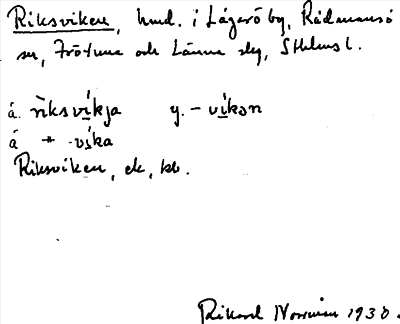 Riksviken, hmd. i Lågarö by, Rådmansö
sn, Frötuna och Länna slg, Sthlms l.
å. rìksvíkja y. - víkən
å " -víka
Riksviken, ek, kb.
Rikard Norrман 1930.